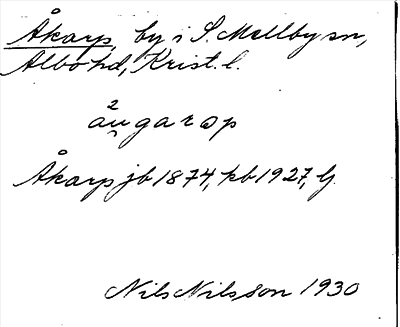 Åkarp, by i S. Mellby sn,
Albo hd, Krist. l.
å²u̯garəp
Åkarp jb 1874, kb 1927, lj.
Nils Nilsson 1930